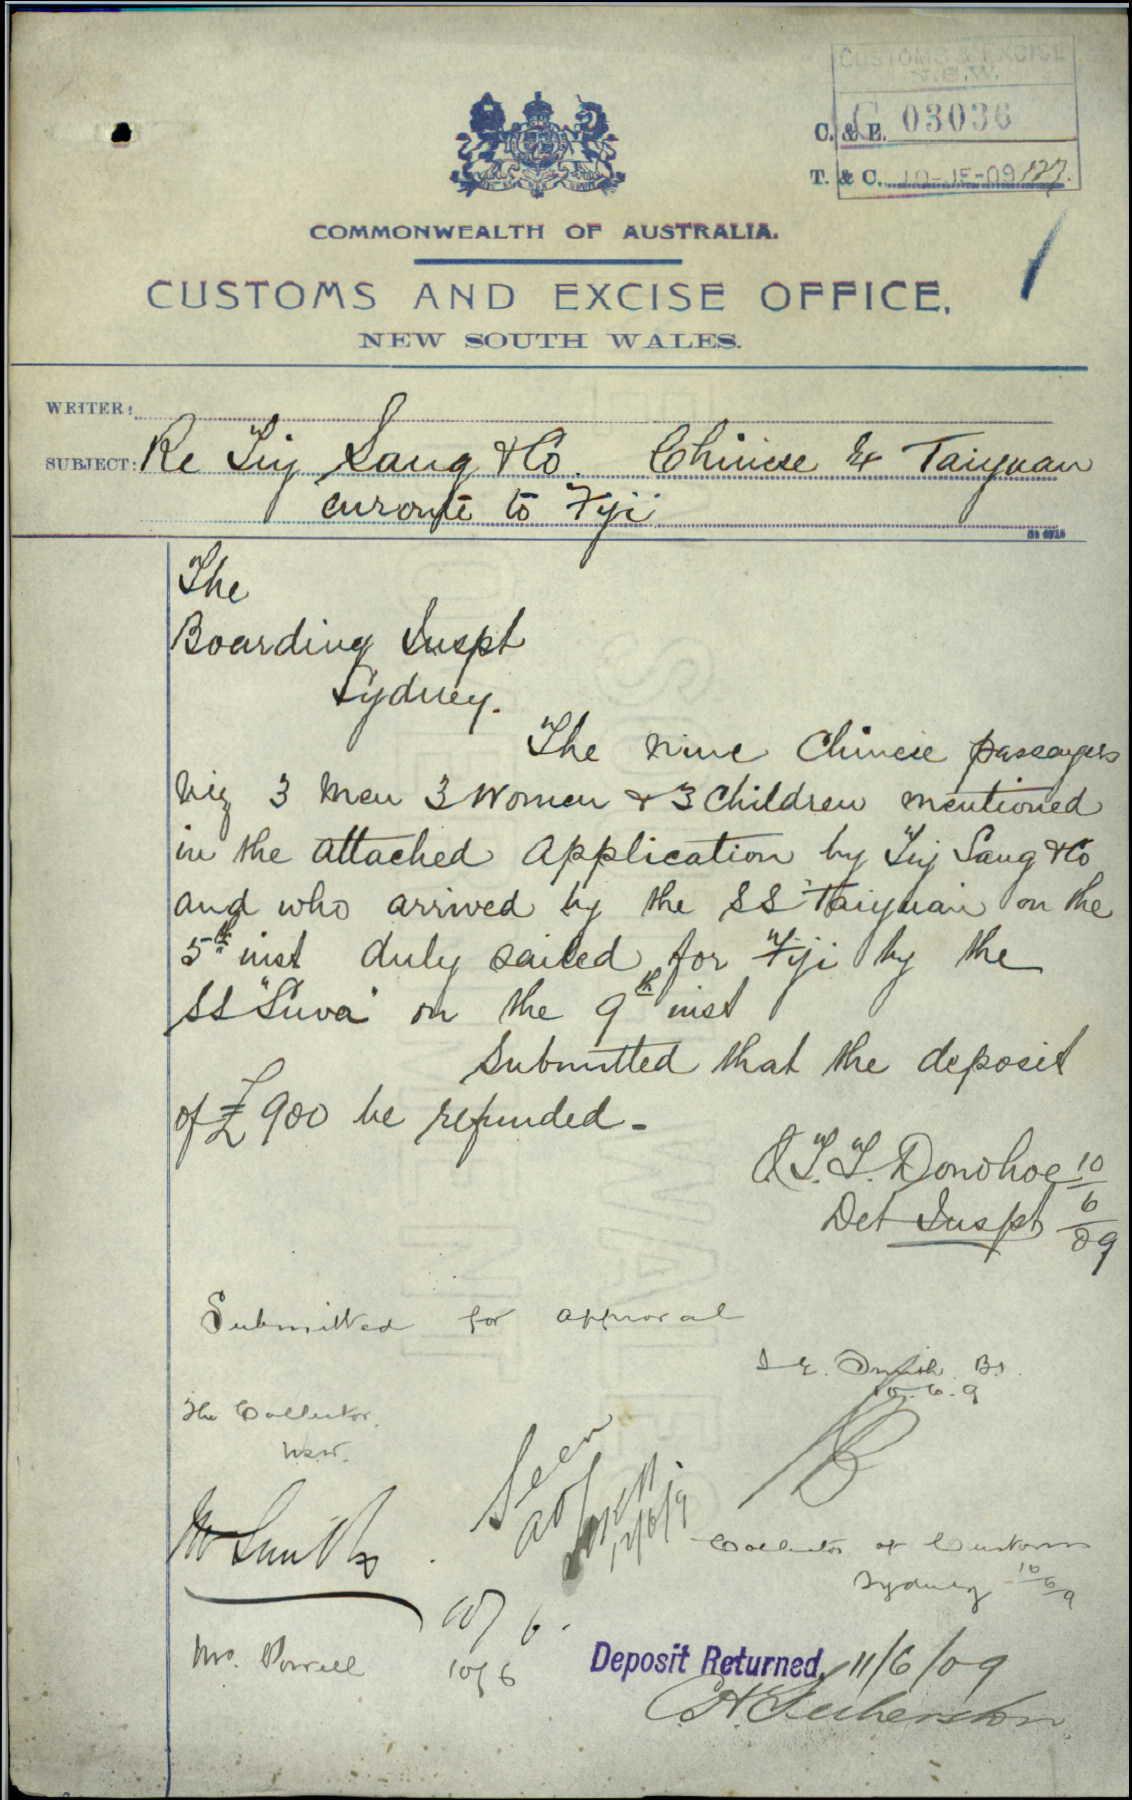 CUSTOMS & EXCISE
N.S.W.
C. & E. G 03036
T. & C. 10-JE-09 127.
COMMONWEALTH OF AUSTRALIA.
CUSTOMS AND EXCISE OFFICE,
NEW SOUTH WALES.
WRITER:
SUBJECT: Re Tiy Sang & Co. Chinese Taiyuan
enroute to Fiji
The
Boarding Inspt
Sydney.
The nine Chinese passengers
viz 3 Men 3 Women & 3 Children mentioned
in the attached Application by Tiy Sang & Co
and who arrived by the SS "Taiyuan" on the
5th inst duly sailed for Fiji by the
SS "Suva" on the 9th inst
Submitted that the deposit
of £900 be refunded -
J.T.T. Donohoe 10/6/09
Det Inspt
Submitted for approval
Smith B.I.
10.6.9
The Collector.
NSW.
Seen
12/6/9
Mr Smith
Collector of Customs
Sydney 10/6/9
10/6.
Mr. Powell 10/6
Deposit Returned, 11/6/09